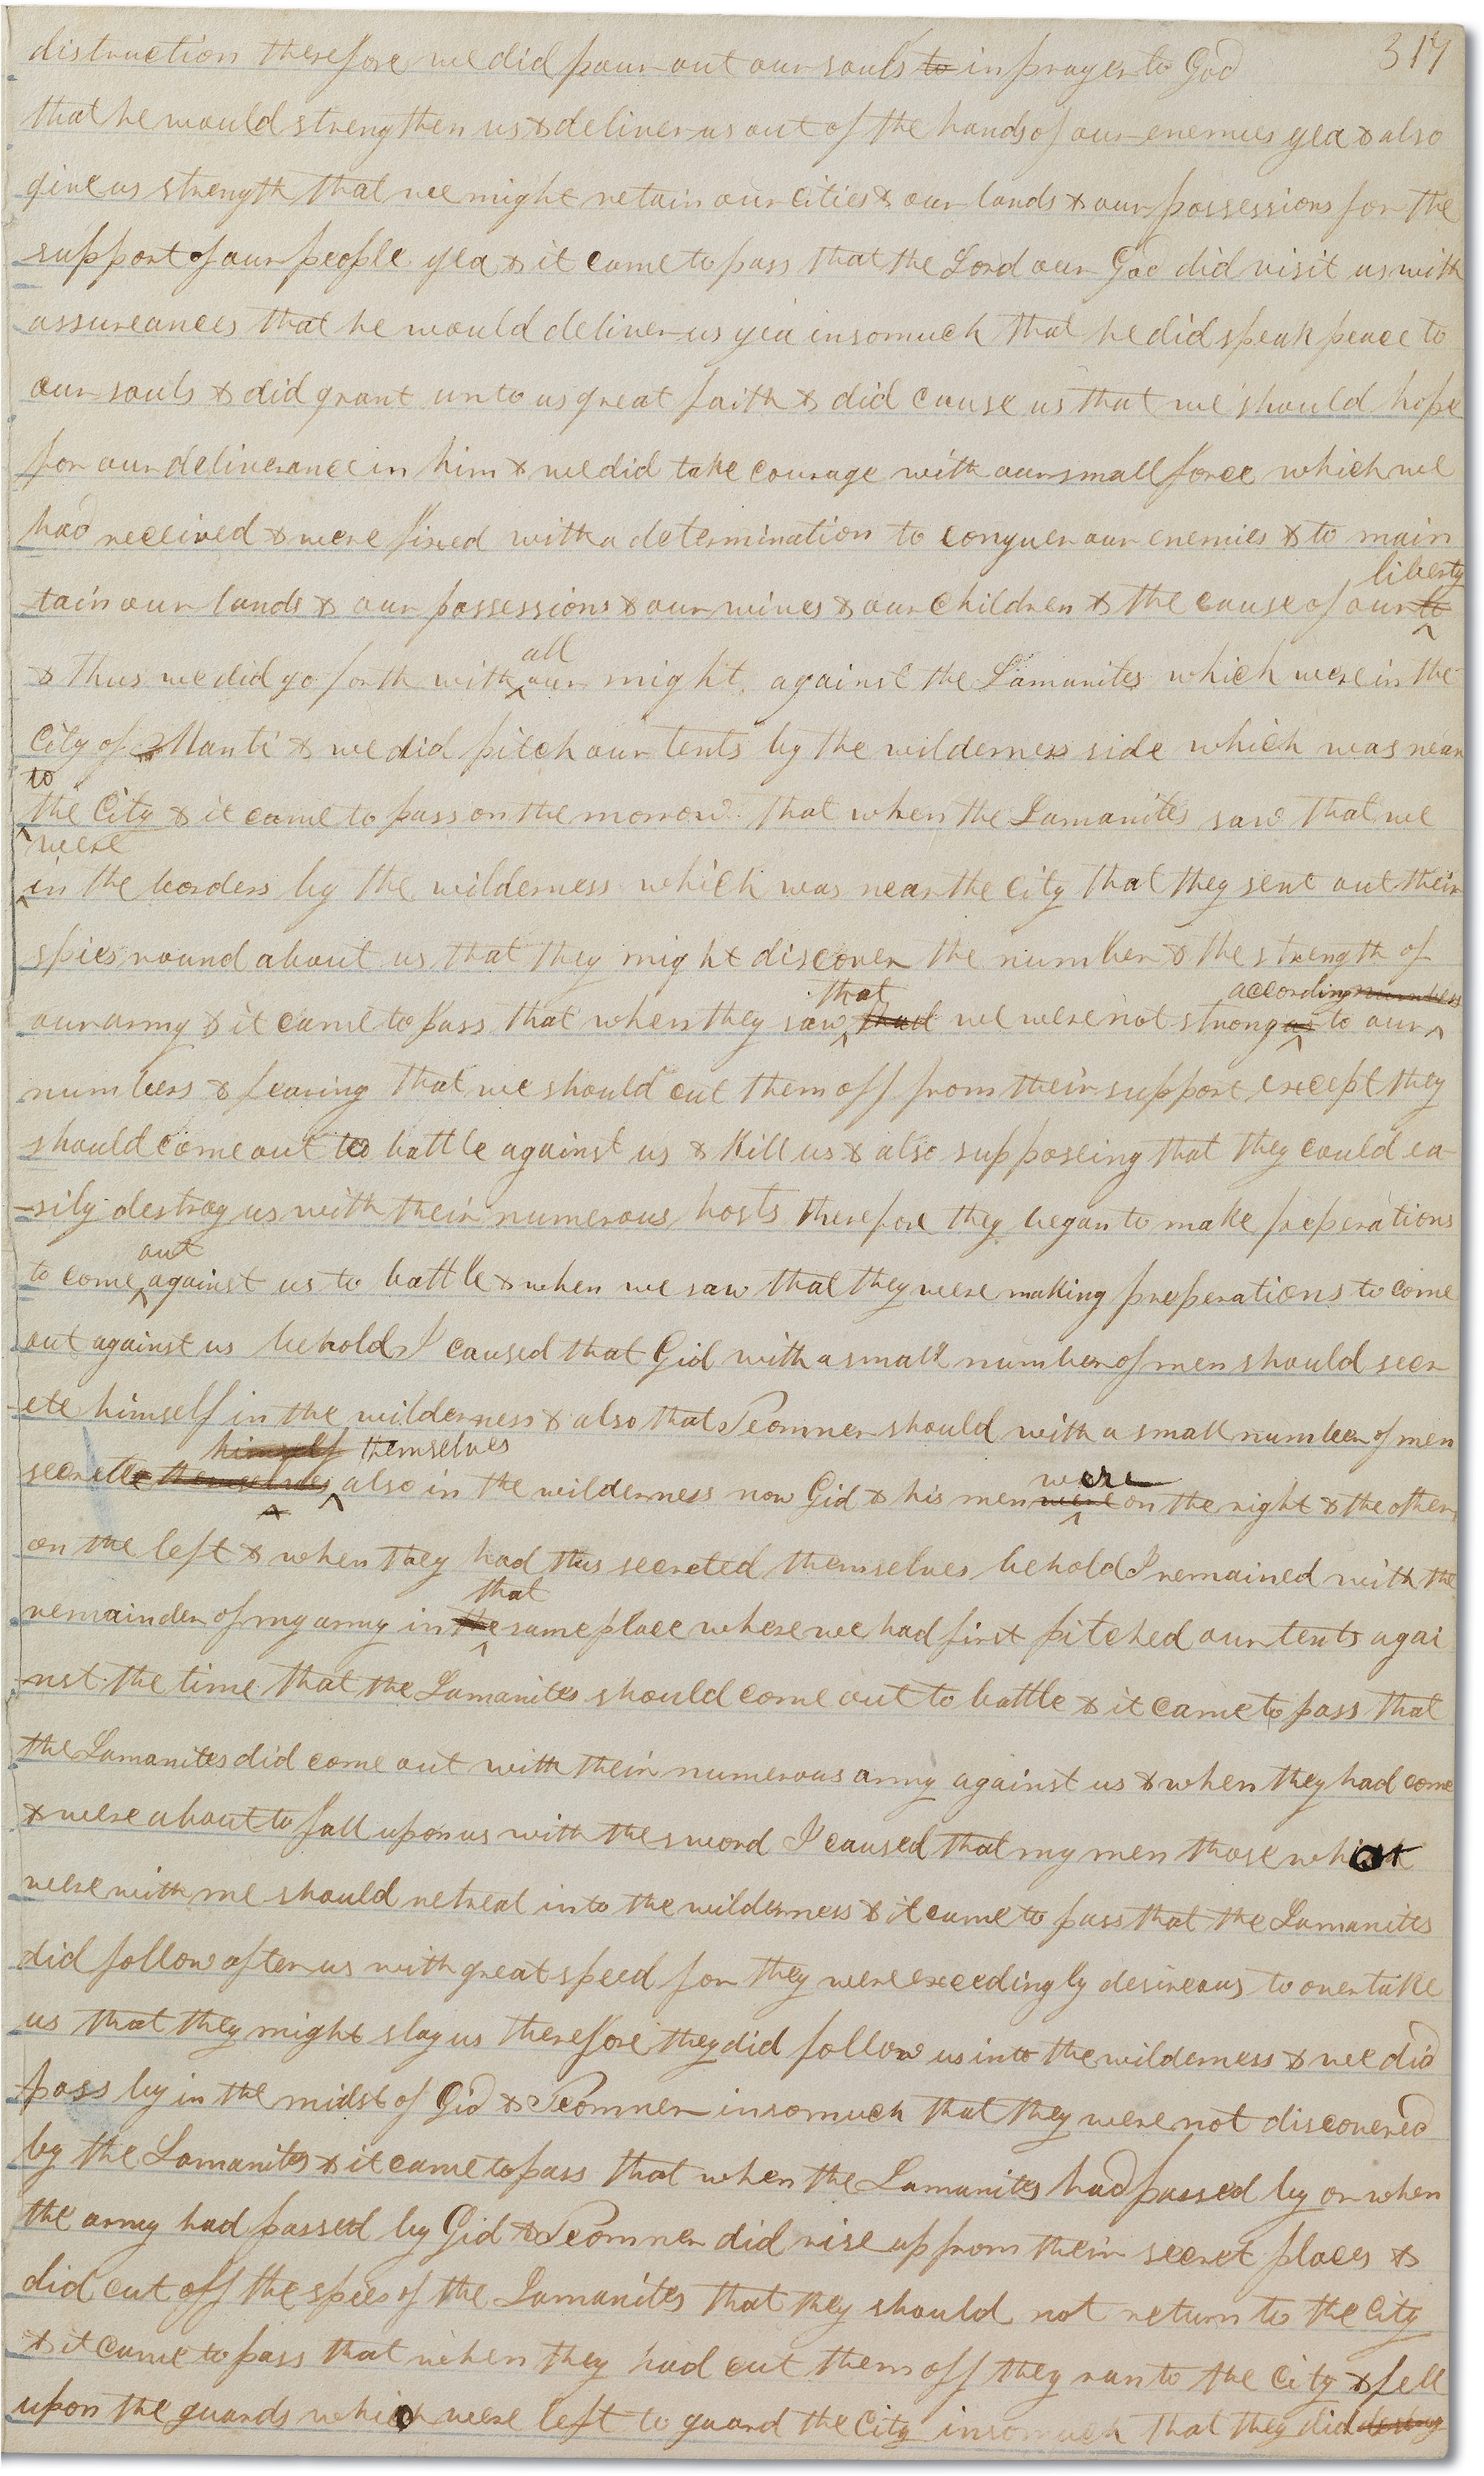 317
distruction therefore we did pour out our souls to in prayer to God
that he would strengthen us & deliver us out of the hands of our enemies yea & also
give us strength that we might retain our cities & our lands & our possessions for the
support of our people yea & it came to pass that the Lord our God did visit us with
assureances that he would deliver us yea insomuch that he did speak peace to
our souls & did grant unto us great faith & did cause us that we should hope
for our deliverance in him & we did take courage with our small force which we
had received & were fixed with a determination to conquer our enemies & to main
liberty
tain our lands & our possessions & our wives & our children & the cause of our li
all
& thus we did go forth with our might against the Lamanites which were in the
City of Manti & we did pitch our tents by the wilderness side which was near
to
the City & it came to pass on the morrow that when the Lamanites saw that we
were
in the borders by the wilderness which was near the city that they sent out their
spies round about us that they might discover the number & the strength of
that according numbers
our army & it came to pass that when they saw that we were not strong as to our
numbers & fearing that we should cut them off from their support except they
should come out to battle against us & kill us & also supposeing that they could ea
-sily destroy us with their numerous hosts therefore they began to make preperations
out
to come against us to battle & when we saw that they were making preperations to come
out against us behold I caused that Gid with a small number of men should secr
-ete himself in the wilderness & also that Teomner should with a small number of men
himself themselves were
secrete themselves also in the wilderness now Gid & his men were on the right & the others
on the left & when they had thus secreted themselves behold I remained with the
that
remainder of my army in the same place where we had first pitched our tents agai
-nst the time that the Lamanites should come out to battle & it came to pass that
the Lamanites did come out with their numerous army against us & when they had come
& were about to fall upon us with the sword I caused that my men those who
were with me should retreat into the wilderness & it came to pass that the Lamanites
did follow after us with great speed for they were exceedingly desireous to overtake
us that they might slay us therefore they did follow us into the wilderness & we did
pass by in the midst of Gid & Teomner insomuch that they were not discovered
by the Lamanites & it came to pass that when the Lamanites had passed by or when
the army had passed by Gid & Teomner did rise up from their secret places &
did cut off the spies of the Lamanites that they should not return to the City
& it came to pass that when they had cut them off they ran to the City & fell
upon the guards who were left to guard the City insomuch that they did destroy